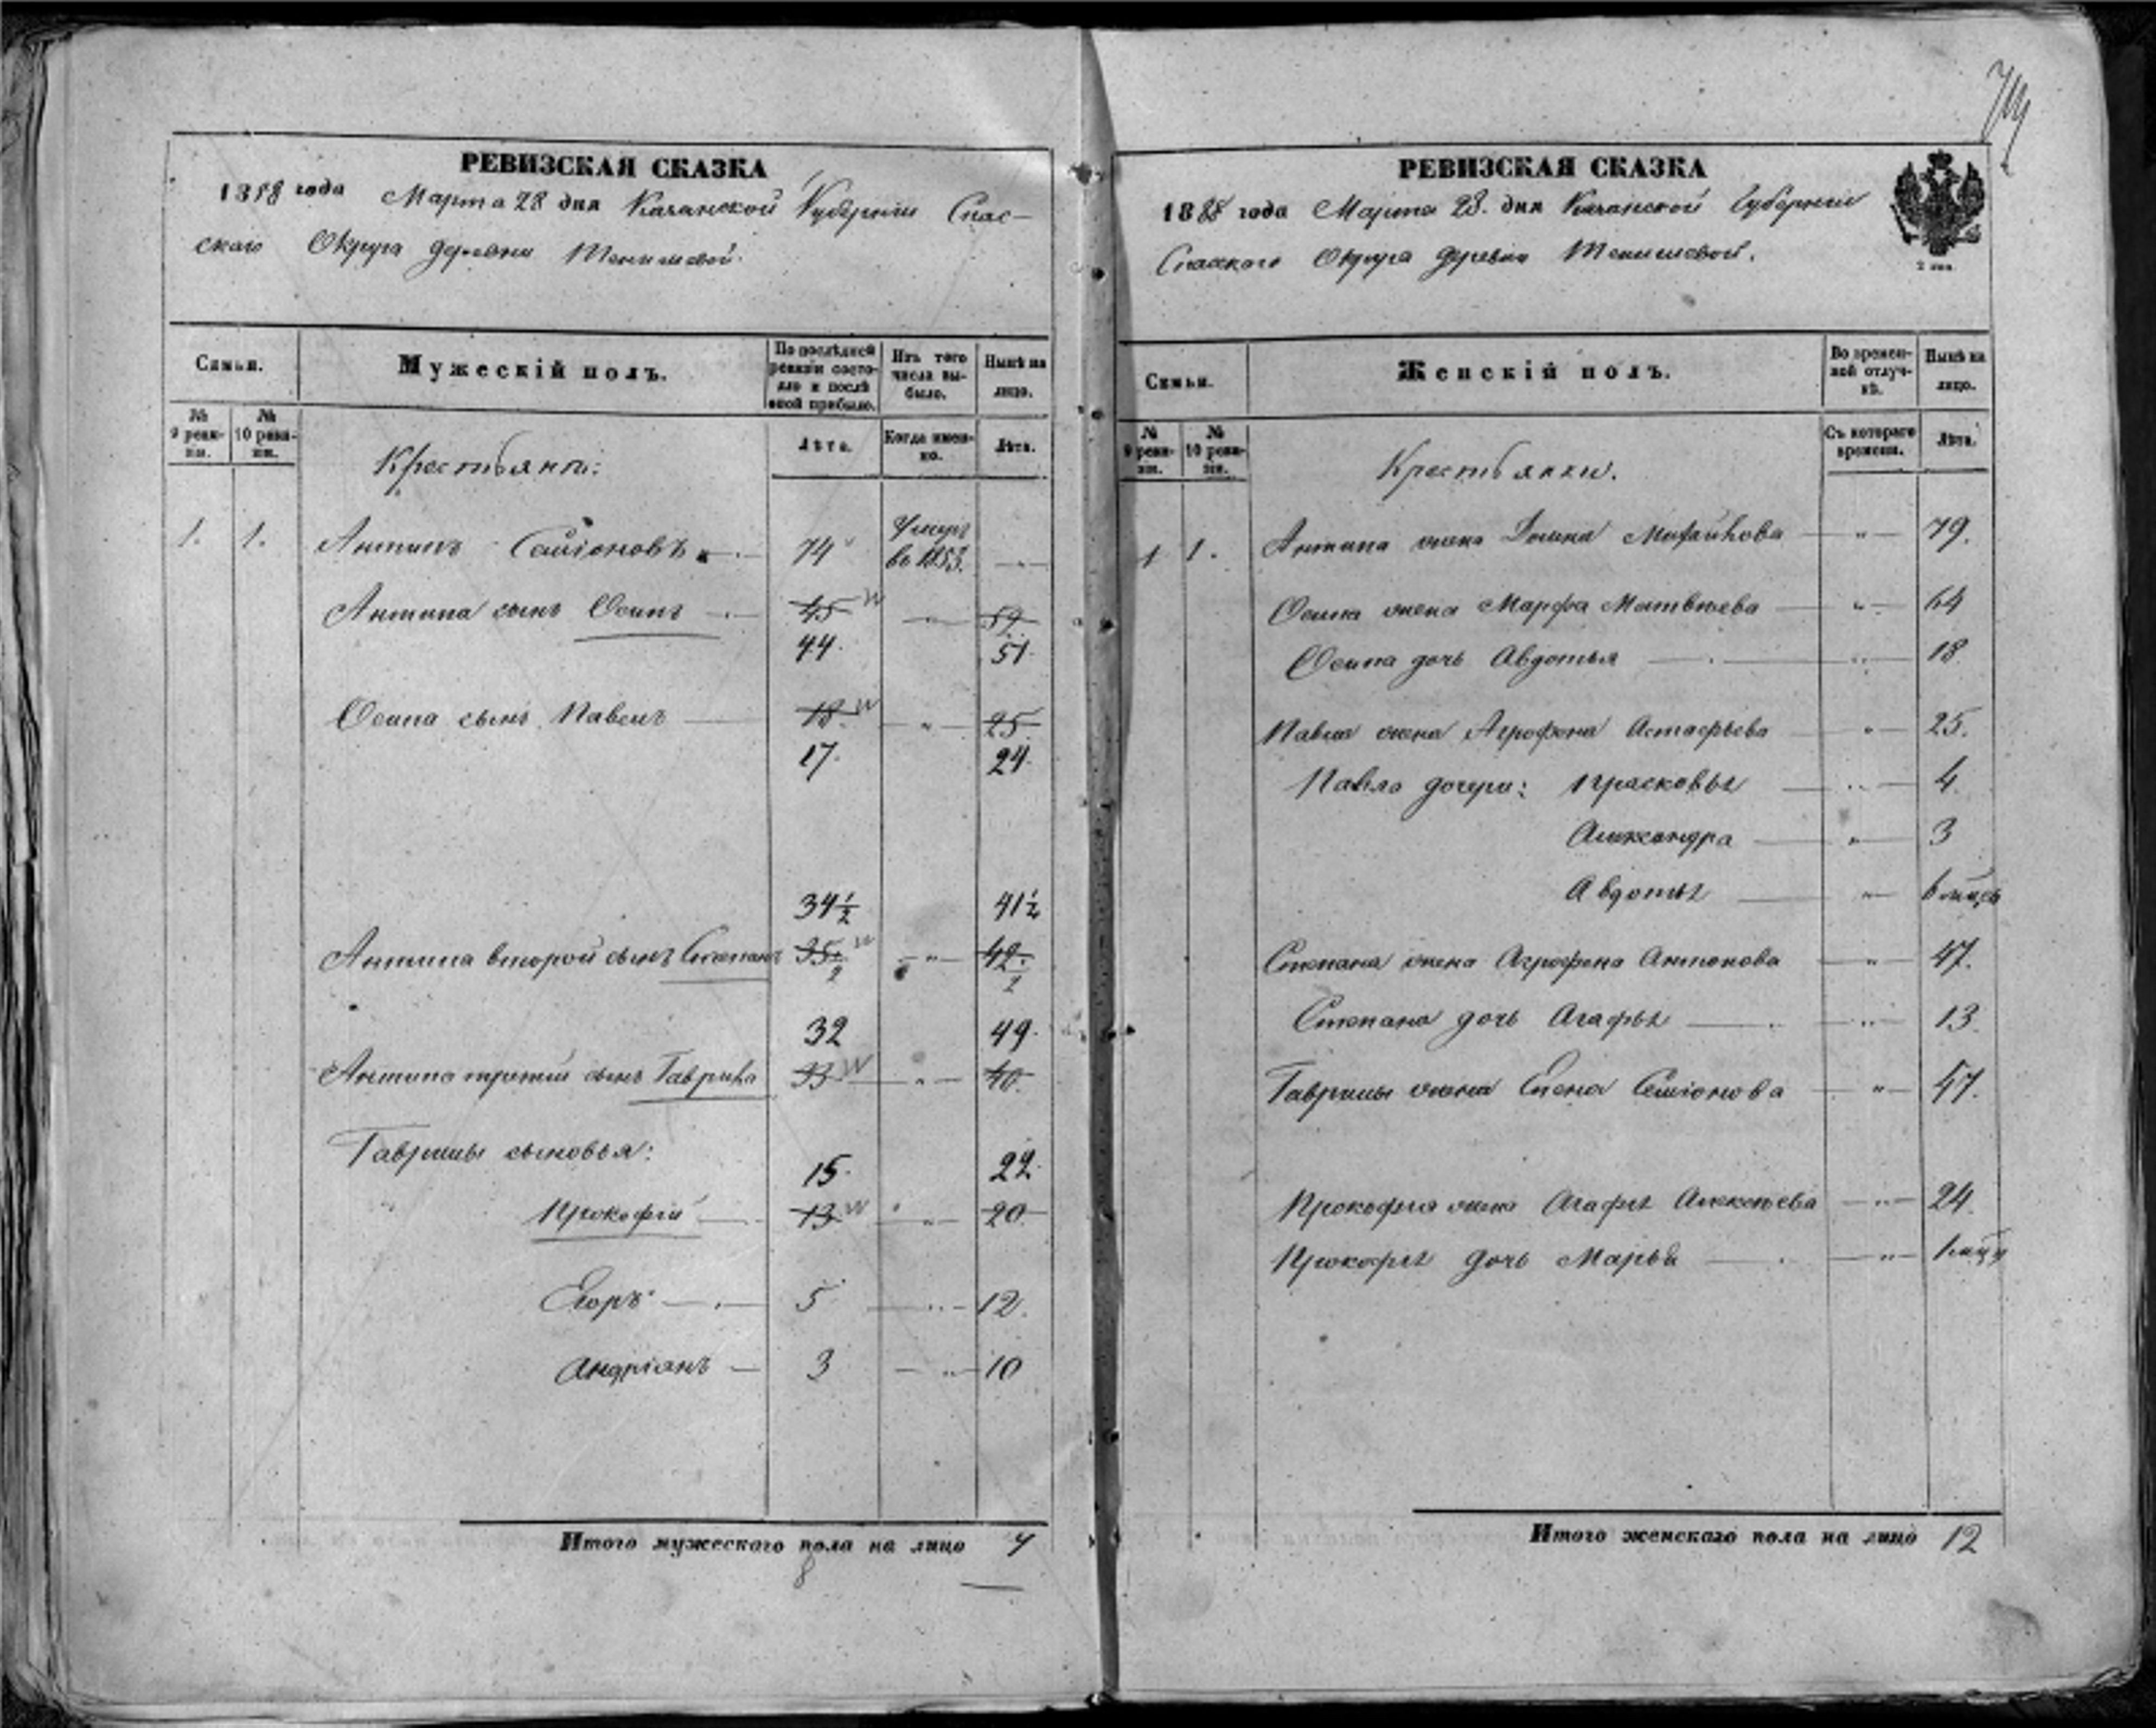 РЕВИЗСКАЯ СКАЗКА
1858 года Марта 28 дня Казанской Губернии Спас-
скаго Округа деревни Тенишевой.
Семьи.
Мужескій полъ.
По послѣдней ревизіи состояло и послѣ оной прибыло.
Изъ того числа выбыло.
Нынѣ на лицо.
№ 9 ревизіи.
№ 10 ревизіи.
Лѣта.
Когда именно.
Лѣта.
Крестьяне:
1. 1. Антипъ Семіоновъ 74 Умеръ въ 1853.
Антипа сынъ Осипъ 45 " 52
44. 51.
Осипа сынъ Павелъ 18 " 25
17. 24.
34 1/2 41 1/2
Антипа второй сынъ Степанъ 35 1/2 " 42 1/2
32 49.
Антипа третій сынъ Гаврила 33 " 40.
Гаврилы сыновья:
15. 22.
Прокофій 13 " 20.
Егоръ 5 " 12.
Андріанъ 3 " 10
Итого мужескаго пола на лицо 7
8
74
РЕВИЗСКАЯ СКАЗКА
1858 года Марта 28. дня Казанской Губерніи
Спасскаго Округа деревни Тенишевой.
2 коп.
Семьи.
Женскій полъ.
Во временной отлучкѣ.
Нынѣ на лицо.
№ 9 ревизіи.
№ 10 ревизіи.
Съ котораго времени.
Лѣта.
Крестьянки.
1 1. Антипа жена Домна Михайлова " 79.
Осипа жена Марфа Матвѣева " 64
Осипа дочь Авдотья " 18
Павла жена Агрофена Астафьева " 25.
Павла дочери: Прасковья " 4.
Александра " 3
Авдотья " 6 мѣсц.
Степана жена Агрофена Антонова " 47.
Степана дочь Агафья " 13.
Гаврилы жена Елена Семіонова " 47.
Прокофья жена Агафья Алексѣева " 24.
Прокофья дочь Марья " 1 мѣсц.
Итого женскаго пола на лицо 12